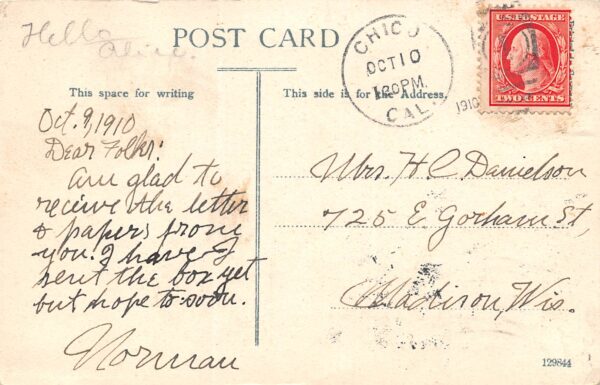 Hello
Alice.
POST CARD
CHICO
OCT 10
1 30 PM
CAL.
1910
U.S. POSTAGE
TWO CENTS
This space for writing
This side is for the Address.
Oct. 9, 1910
Dear Folks:
Am glad to
recive the letter
& papers from
you. I have
sent the box yet
but hope to soon.
Norman
Mrs. H C Danielson
725 E. Gorham St,
Madison, Wis.
129844